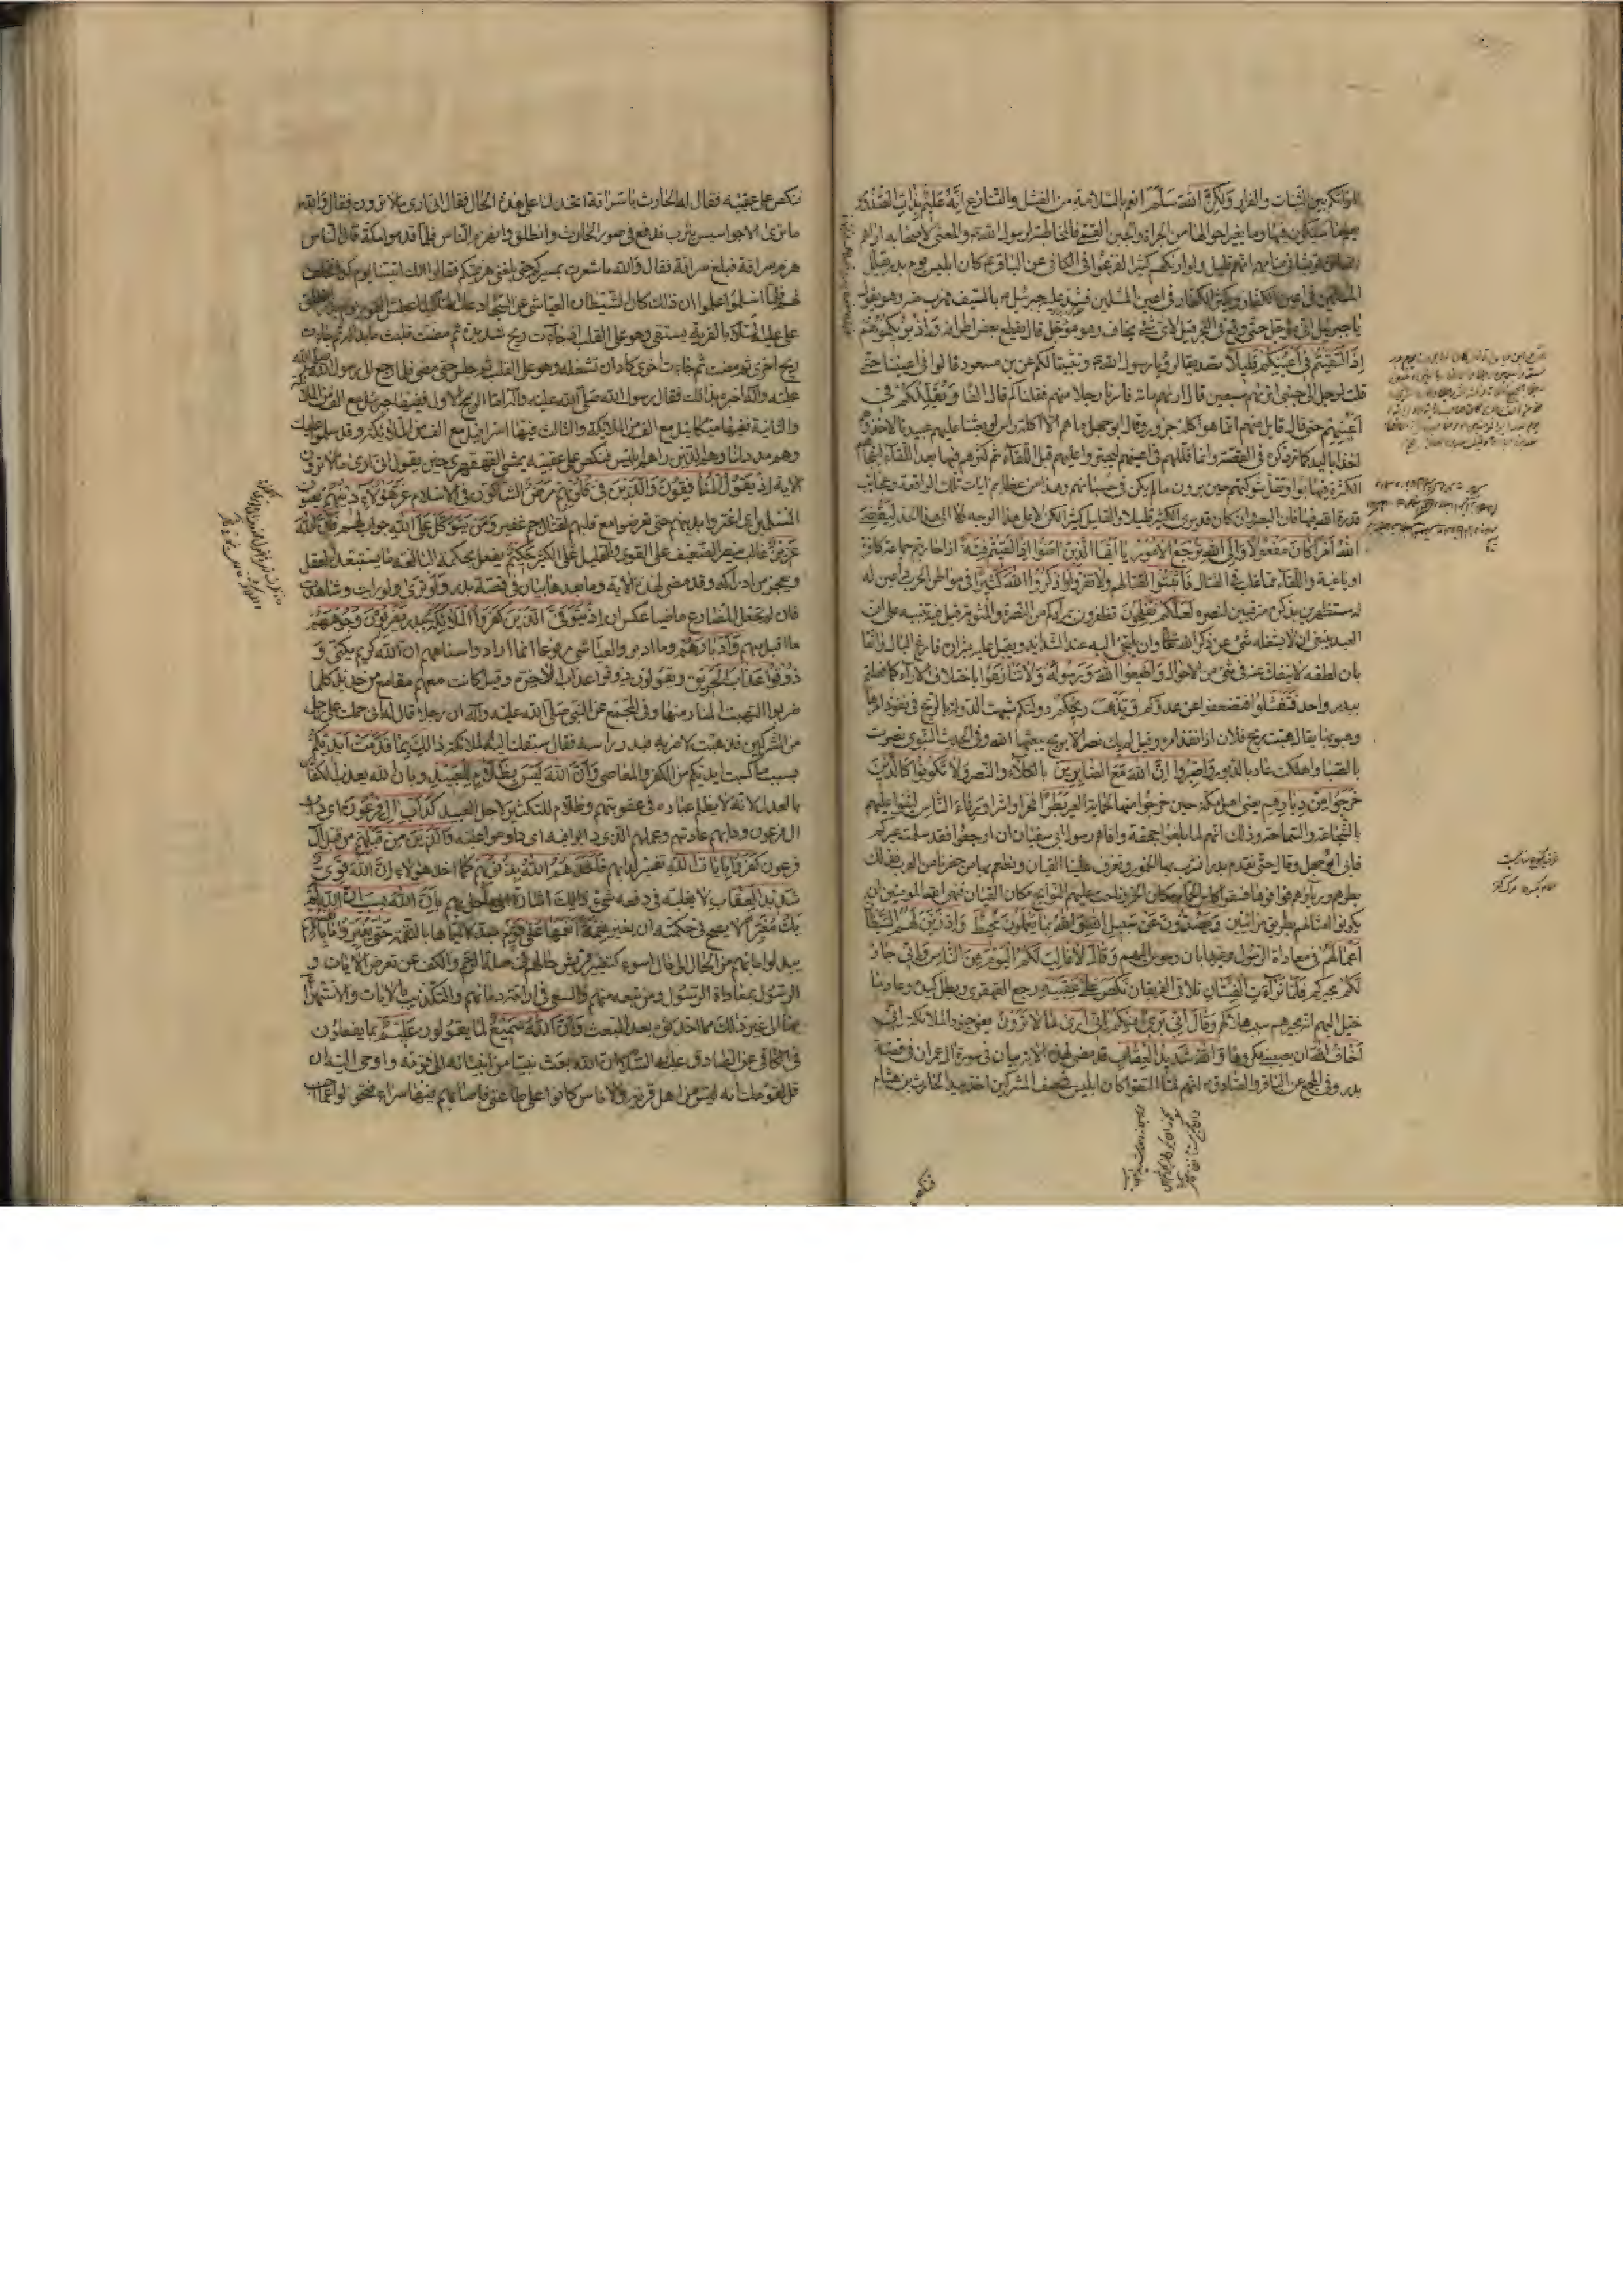 امركم بين الثبات والفرار ولكن الله سلم انعم بالسلامة من الفشل والتنازع انه عليم بذات الصدور
يعلم ما سيكون فيها وما يغير احوالها من الجرأة والجبن القمي فالمخاطبة لرسول الله والمعنى لاصحابه اراهم
قريشا في منامهم انهم قليل ولو اراكهم كثيرا لفزعوا في الكافي عن الباقر كان ابليس يوم بدر يقلل
المسلمين في اعين الكفار ويكثر الكفار في اعين المسلمين فشد عليه جبرئيل بالسيف فهرب منه وهو يقول
يا جبرئيل اني مؤجل حتى وقع في البحر قيل لاي شيء يخاف وهو مؤجل قال يقطع بعض اطرافه واذ يريكموهم
اذ التقيتم في اعينكم قليلا تصديقا لرؤيا رسول الله وتثبيتا لكم عن بن مسعود قالوا في اعيننا حتى
قلت لرجل الى جنبي اتريهم سبعين قال اريهم مائة فاسرنا رجلا منهم فقلنا كم قال الفا ويقللكم في
اعينهم حتى قال قايل منهم انما هو اكلة جزور وقال ابو جهل ما هم الا اكلة راس لو بعثنا عليهم عبيدنا لاخذوهم
اخذا باليد كما مر ذكره في القصة وانما قللهم في اعينهم ليجتروا عليهم قبل اللقاء ثم كثرهم فيها بعد اللقاء لتفجأهم
الكثرة فيهابوا وتفل شوكتهم حين يرون ما لم يكن في حسبانهم وهذا من عظائم ايات تلك الواقعة وعجايب
قدرة الله فيها فان البصر وان كان قد يرى الكثير قليلا والقليل كثيرا لكن لا على هذا الوجه ولا الى هذا الحد ليقضي
الله امرا كان مفعولا والى الله ترجع الامور يا ايها الذين امنوا اذا لقيتم فئة اذا حاربتم جماعة كافرة
او باغية واللقاء مما غلب في القتال فاثبتوا لقتالهم ولا تفروا واذكروا الله كثيرا في مواطن الحرب داعين له
مستظهرين بذكره مترقبين لنصره لعلكم تفلحون تظفرون بمرادكم من النصرة والمثوبة قيل فيه تنبيه على ان
العبد ينبغي ان لا يشغله شيء عن ذكر الله وان يلتجئ اليه عند الشدايد ويقبل عليه بشراشره فارغ البال واثقا
بان لطفه لا ينفك عنه في شيء من الاحوال واطيعوا الله ورسوله ولا تنازعوا باختلاف الاراء كما فعلتم
ببدر واحد فتفشلوا فتضعفوا عن عدوكم وتذهب ريحكم دولتكم شبهت الدولة بالريح في نفوذ امرها
وهبوبها يقال هبت ريح فلان اذا نفذ امره وقيل لم يكن نصر الا بريح يبعثها الله وفي الحديث النبوي نصرت
بالصبا واهلكت عاد بالدبور واصبروا ان الله مع الصابرين بالكلاءة والنصر ولا تكونوا كالذين
خرجوا من ديارهم يعني اهل مكة حين خرجوا منها لحماية العير بطرا فخرا واشرا ورئاء الناس ليثنوا عليهم
بالشجاعة والسماحة وذلك انهم لما بلغوا جحفة وافاهم رسول ابي سفيان ان ارجعوا فقد سلمت عيركم
فابى ابو جهل وقال حتى نقدم بدرا نشرب بها الخمور وتعزف علينا القيان ونطعم بها من حضرنا من العرب فذلك
بطرهم ورياؤهم فوافوها فسقوا كاس الحمام مكان الخمر وناحت عليهم النوايح مكان القيان فنهى الله المؤمنين ان
يكونوا امثالهم بطرين مرائين ويصدون عن سبيل الله والله بما يعملون محيط واذ زين لهم الشيطان
اعمالهم في معاداة الرسول وغيرها بان وسوس اليهم وقال لا غالب لكم اليوم من الناس واني جار
لكم مجيركم فلما تراءت الفئتان تلاقى الفريقان نكص على عقبيه رجع القهقرى وبطل كيده وعاد ما
خيل اليهم انه مجيرهم سبب هلاكهم وقال اني بريء منكم اني ارى ما لا ترون يعني جنود الملائكة اني
اخاف الله ان يصيبني مكروها والله شديد العقاب قد مضى لهذه الاية بيان في سورة ال عمران في قصة
بدر وفي المجمع عن الباقر والصادق انهم لما التقوا كان ابليس في صف المشركين اخذ بيد الحارث بن هشام
فنكص
نكص على عقبيه فقال له الحارث يا سراقة اتخذلنا على هذه الحال فقال اني ارى ما لا ترون فقال والله
ما ترى الا جواسيس يثرب فدفع في صدر الحارث وانطلق وانهزم الناس فلما قدموا مكة قال الناس
هزم سراقة فبلغ سراقة فقال والله ما شعرت بمسيركم حتى بلغني هزيمتكم فقالوا انك اتيتنا يوم كذا فحلف
لهم فلما اسلموا علموا ان ذلك كان الشيطان العياشي عن السجاد
علي عليه السلام بالقربة يستقي وهو على القليب اذ جاءت ريح شديدة ثم مضت فلبث ما بدا له ثم جاءت
ريح اخرى ثم مضت ثم جاءته اخرى كاد ان تشغله وهو على القليب ثم جلس حتى مضى فلما رجع الى رسول الله صلى الله
عليه واله اخبره بذلك فقال رسول الله صلى الله عليه واله اما الريح الاولى فيها جبرئيل مع الف من الملائكة
والثانية فيها ميكائيل مع الف من الملائكة والثالثة فيها اسرافيل مع الف من الملائكة وقد سلموا عليك
وهم مدد لنا وهم الذين راهم ابليس فنكص على عقبيه يمشي القهقرى حين يقول اني ارى ما لا ترون
الاية اذ يقول المنافقون والذين في قلوبهم مرض الشاكون في الاسلام غر هؤلاء دينهم يعنون
المسلمين اي اغتروا بدينهم حتى تعرضوا مع قلتهم لقتال جم غفير ومن يتوكل على الله جواب لهم فان الله
عزيز غالب ينصر الضعيف على القوي والقليل على الكثير حكيم يفعل بحكمته البالغة ما يستبعده العقل
ويعجز من ادراكه وقد مضى لهذه الاية وما بعدها بيان في قصة بدر ولو ترى ولو رايت وشاهدت
فان لو تجعل المضارع ماضيا عكس ان اذ يتوفى الذين كفروا الملائكة ببدر يضربون وجوههم
ما اقبل منهم وادبارهم وما ادبر والعياشي مرفوعا انما اراد واستاههم ان الله كريم يكني و
ذوقوا عذاب الحريق ويقولون ذوقوا عذاب الاخرة وقيل كانت معهم مقامع من حديد كلما
ضربوا التهبت النار منها وفي المجمع عن النبي صلى الله عليه واله ان رجلا قال له اني حملت على رجل
من المشركين فذهبت لاضربه فبدر راسه فقال سبقك اليه الملائكة ذلك بما قدمت ايديكم
بسبب ما كسبت ايديكم من الكفر والمعاصي وان الله ليس بظلام للعبيد وبان الله يعذب الكفار
بالعدل لانه لا يظلم عباده في عقوبتهم وظلام للتكثير لاجل العبيد كداب ال فرعون اي داب
ال فرعون ودابهم عادتهم وعملهم الذي دابوا فيه اي داوموا عليه والذين من قبلهم من قبل ال
فرعون كفروا بايات الله تفسير لدابهم فاخذهم الله بذنوبهم كما اخذ هؤلاء ان الله قوي
شديد العقاب لا يغلبه في دفعه شيء ذلك اشارة الى ما حل بهم بان الله بسبب ان الله لم
يك مغيرا لا يصح في حكمته ان يغير نعمة انعمها على قوم مبدلا اياها بالنقمة حتى يغيروا ما بانفسهم
يبدلوا ما بهم من الحال الى حال اسوء كتغيير قريش حالهم في صلة الرحم والكف عن تعرض الايات و
الرسول بمعاداة الرسول ومن تبعه منهم والسعي في اراقة دمائهم والتكذيب بالايات والاستهزاء
بها الى غير ذلك مما احدثوه بعد المبعث وان الله سميع لما يقولون عليم بما يفعلون
في الكافي عن الصادق عليه السلام ان الله بعث نبيا من انبيائه الى قومه واوحى اليه ان
قل لقومك انه ليس من اهل قرية ولا ناس كانوا على طاعتي فاصابهم فيها سراء فتحولوا عما احب